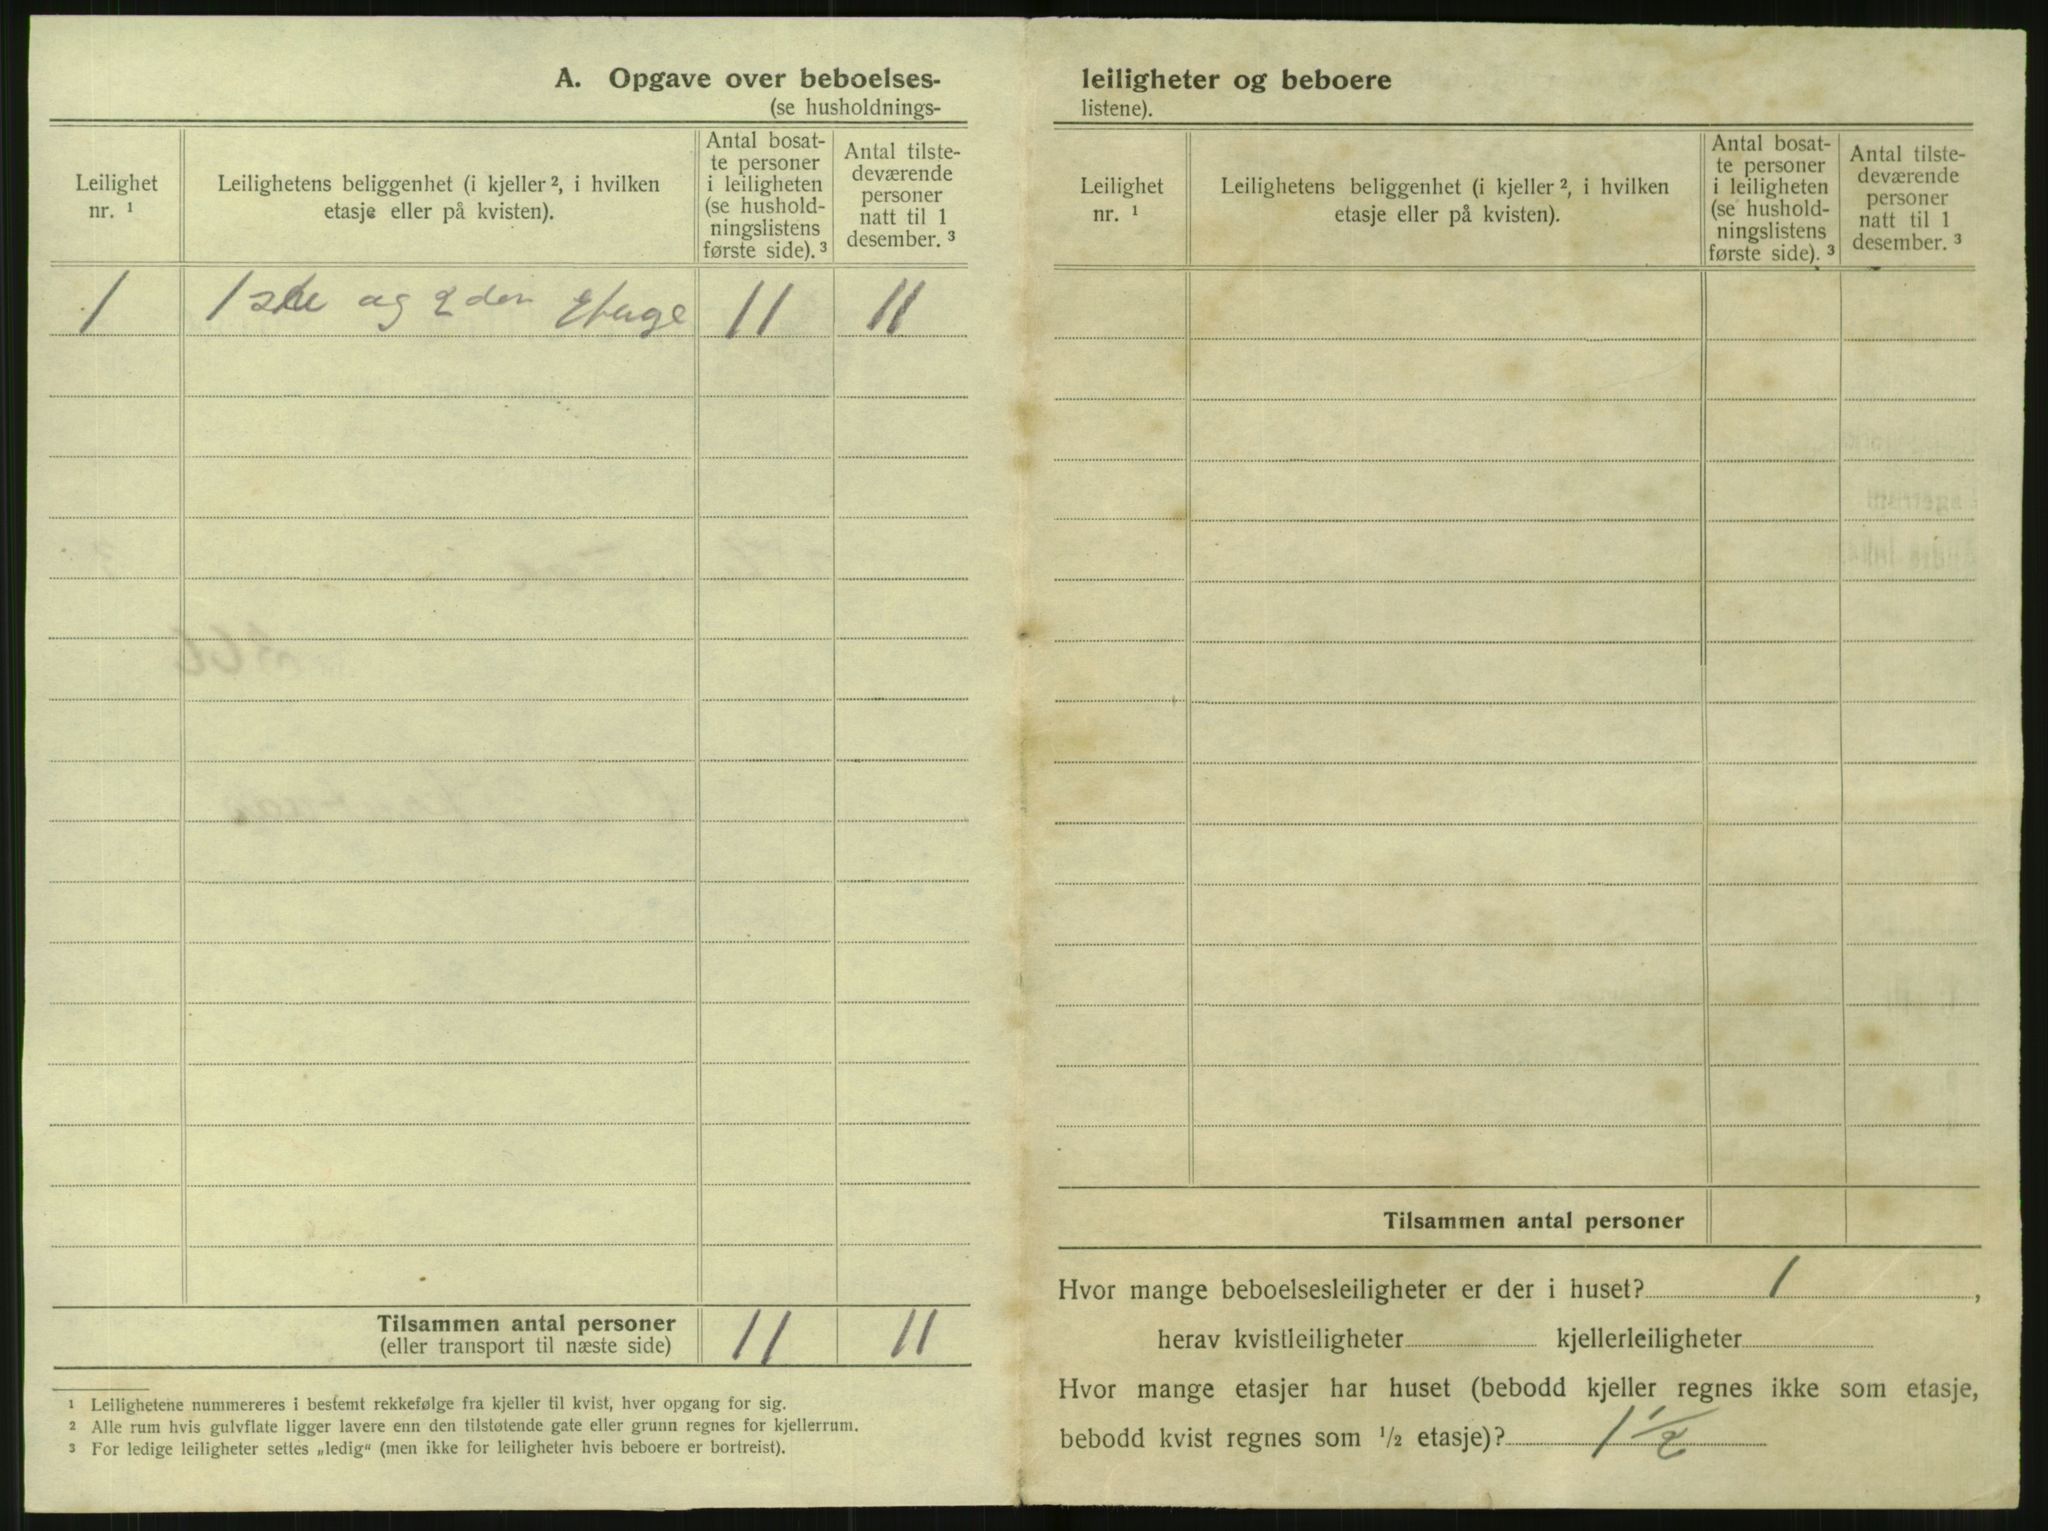 A. Opgave over beboelses-
(se husholdnings-
Leilighet
nr. ¹
Leilighetens beliggenhet (i kjeller ², i hvilken
etasje eller på kvisten).
Antal bosat-
te personer
i leiligheten
(se hushold-
ningslistens
første side). ³
Antal tilste-
deværende
personer
natt til 1
desember. ³
1 1ste og 2den Etage 11 11
Tilsammen antal personer 11 11
(eller transport til næste side)
¹ Leilighetene nummereres i bestemt rekkefølge fra kjeller til kvist, hver opgang for sig.
² Alle rum hvis gulvflate ligger lavere enn den tilstøtende gate eller grunn regnes for kjellerrum.
³ For ledige leiligheter settes „ledig“ (men ikke for leiligheter hvis beboere er bortreist).
leiligheter og beboere
listene).
Leilighet
nr. ¹
Leilighetens beliggenhet (i kjeller ², i hvilken
etasje eller på kvisten).
Antal bosat-
te personer
i leiligheten
(se hushold-
ningslistens
første side). ³
Antal tilste-
deværende
personer
natt til 1
desember. ³
Tilsammen antal personer
Hvor mange beboelsesleiligheter er der i huset? 1,
herav kvistleiligheter kjellerleiligheter
Hvor mange etasjer har huset (bebodd kjeller regnes ikke som etasje,
bebodd kvist regnes som ½ etasje)? 1 ½